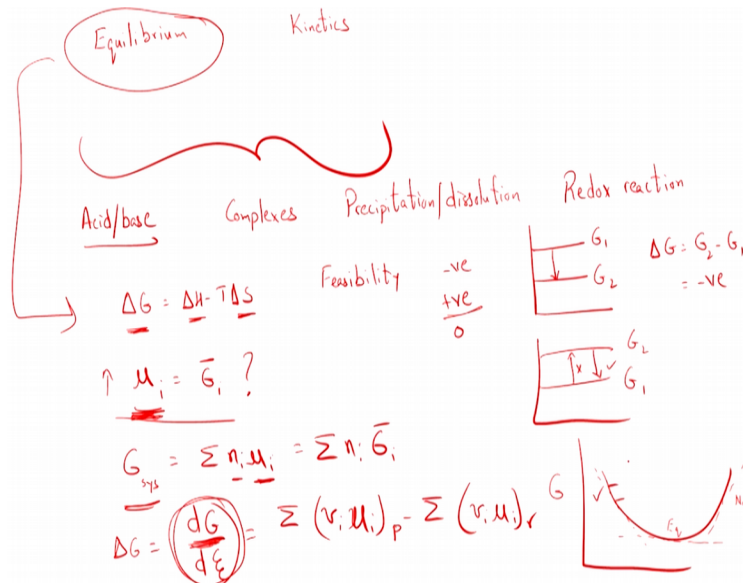 Equilibrium Kinetics
Acid/base Complexes Precipitation/dissolution Redox reaction
ΔG = ΔH - TΔS Feasibility -ve
+ve
0
G₁
G₂
ΔG = G₂ - G₁
= -ve
↑ μᵢ = Ḡᵢ ?
G₂
x ✓
G₁
G_sys = Σ nᵢ μᵢ = Σ nᵢ Ḡᵢ
ΔG = dG/dξ = Σ (νᵢ μᵢ)_p - Σ (νᵢ μᵢ)_r
G
✓
Eq